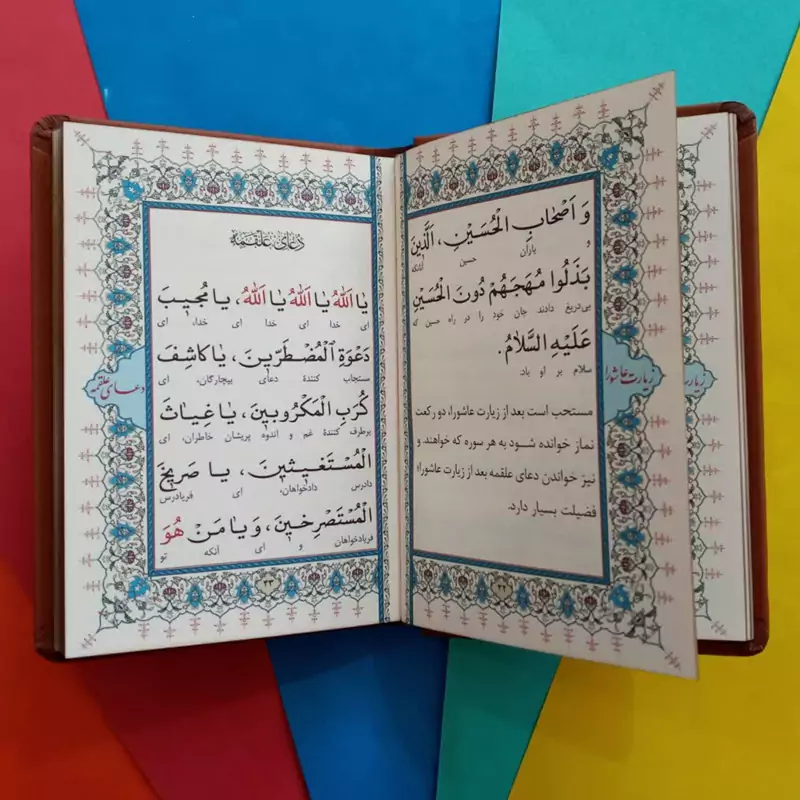 وَ اَصْحَابِ الْحُسَيْنِ، اَلَّذِينَ
و یاران حسین آنانی
بَذَلُوا مُهَجَهُمْ دُونَ الْحُسَيْنِ
بی‌دریغ دادند جان خود را در راه حسین که
عَلَيْهِ السَّلَامُ.
سلام بر او باد.
مستحب است بعد از زیارت عاشورا، دو رکعت
نماز خوانده شود به هر سوره که خواهند و
نیز خواندن دعای علقمه بعد از زیارت عاشورا؛
فضیلت بسیار دارد.
زیارت عاشورا
۲۲
زیارت
دعای علقمه
یَا اَللّٰهُ یَا اَللّٰهُ یَا اَللّٰهُ، یَا مُجِیبَ
ای خدا ای خدا ای خدا، ای
دَعْوَةِ الْمُضْطَرِّینَ، یَا کَاشِفَ
مستجاب کنندهٔ دعای بیچارگان، ای
کُرَبِ الْمَکْرُوبِینَ، یَا غِیَاثَ
برطرف کنندهٔ غم و اندوه پریشان خاطران، ای
الْمُسْتَغِیثِینَ، یَا صَرِیخَ
دادرس دادخواهان، ای فریادرس
الْمُسْتَصْرِخِینَ، وَ یَا مَنْ هُوَ
فریادخواهان و ای آنکه تو
دعای علقمه
۲۳